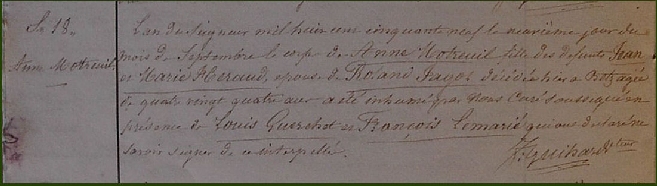 S. 18.
Anne Motreuil
L'an du Seigneur mil huit cent cinquante neuf le neuvième jour du
mois de Septembre le corps de Anne Motreuil fille des défunts Jean
et Marie Heraud, épouse de Roland Fayot décédée hier à agée
de quatre vingt quatre ans a été inhumé par Nous Curé soussigné en
présence de Louis Guerchot et François Lemarié qui ont déclaré ne
savoir signer de ce interpellé.